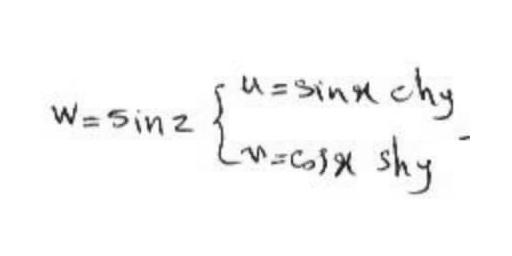 w = sin z { u = sin x chy
v = cos x shy